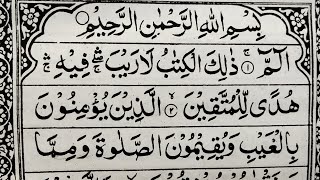 بِسْمِ اللهِ الرَّحْمٰنِ الرَّحِيْمِ
الٓمّٓ ۚ ﴿۱﴾ ذٰلِكَ الْكِتٰبُ لَا رَيْبَ ۛۖ فِيْهِ ۛۚ
هُدًى لِّلْمُتَّقِيْنَ ﴿۲﴾ الَّذِيْنَ يُؤْمِنُوْنَ
بِالْغَيْبِ وَيُقِيْمُوْنَ الصَّلٰوةَ وَمِمَّا